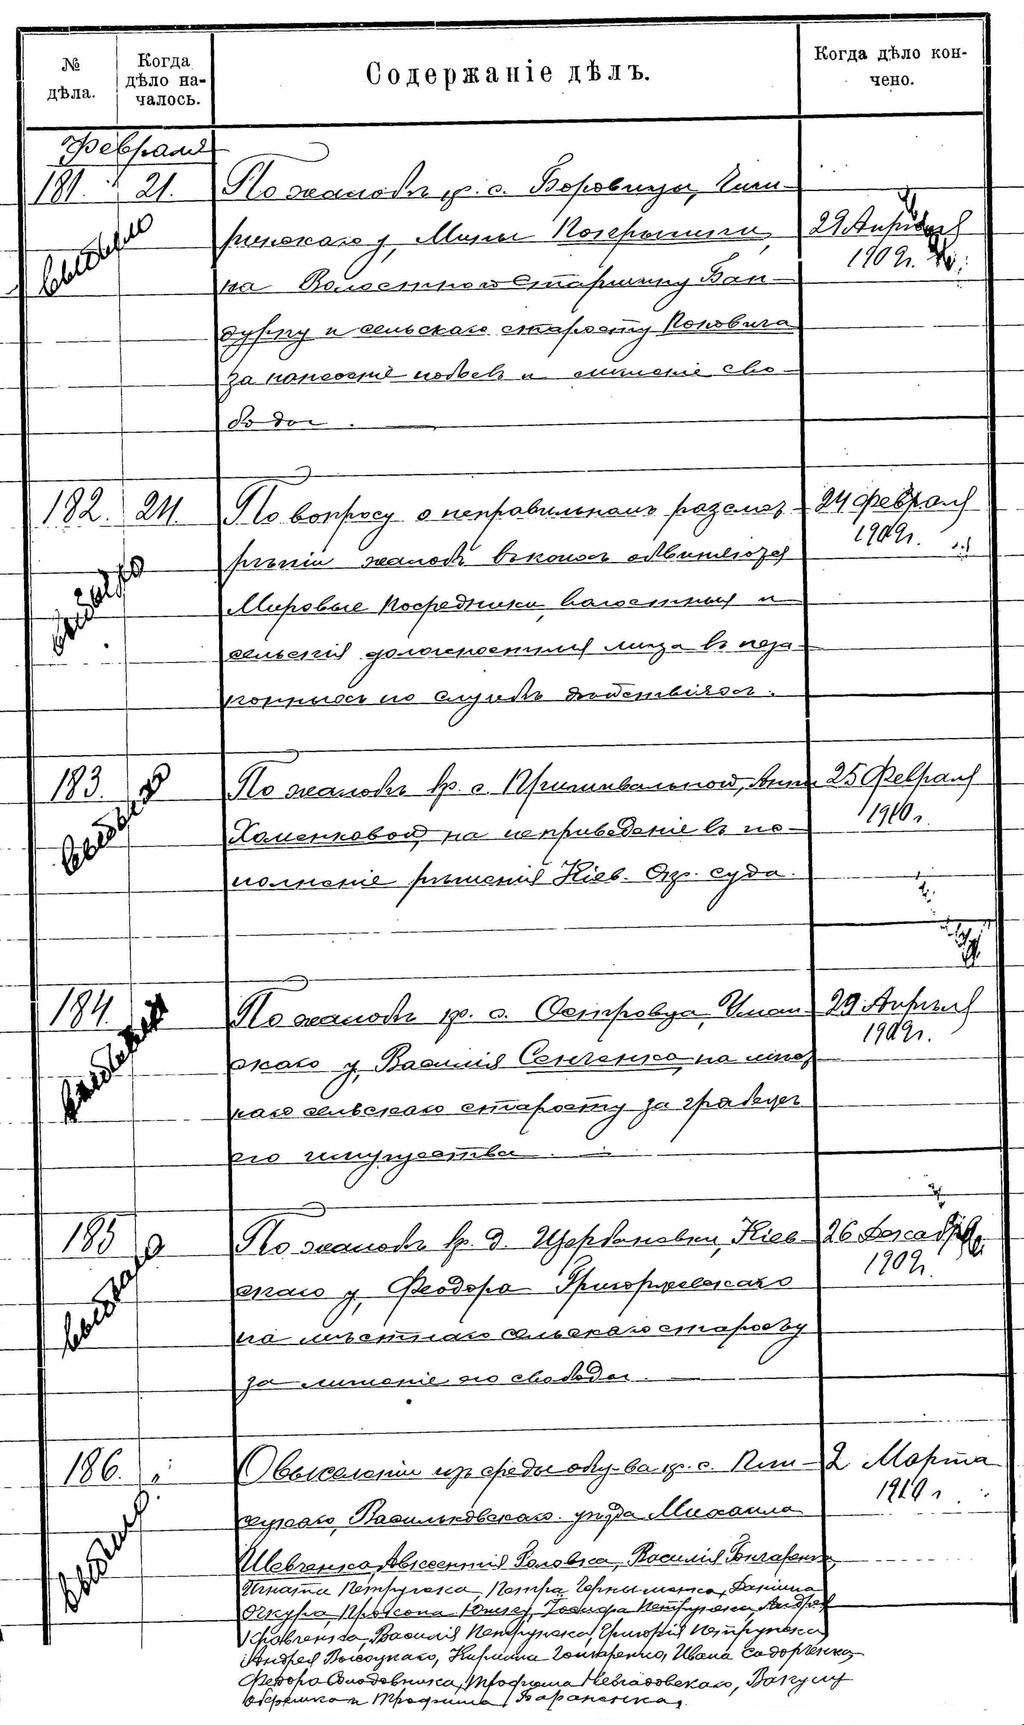 № дѣла.
Когда дѣло на-
чалось.
Содержаніе дѣлъ.
Когда дѣло кон-
чено.
Февраля
181. 21. По жалобѣ кр. с. Боровицы, Чиги-
ринскаго у, Мины
на Волостного Старшину Бан-
дурку и сельскаго старосту
за нанесеніе побоевъ и лишеніе сво-
боды.
29 Апрѣля
1909г.
выбыло
182. 24. По вопросу о неправильномъ разсмот-
рѣніи жалобъ въ коихъ обвиняются
Мировые Посредники, волостныя и
сельскія должностныя лица въ неза-
конныхъ по службѣ дѣйствіяхъ.
24 Февраля
1909г.
выбыло
183. По жалобѣ кр. с. Анны
Хоменковой, на неприведеніе въ ис-
полненіе рѣшенія Кіев. Окр. суда.
25 Февраля
1910г.
выбыло
184. По жалобѣ кр. с. Островца, Уман-
скаго у, Василія Сенченко, на мѣст-
наго сельскаго старосту за грабежъ
его имущества.
29 Апрѣля
1909г.
185 По жалобѣ кр. д. Щербановки, Кіев-
скаго у, Феодора Григоржевскаго
на мѣстнаго сельскаго старосту
за лишеніе его свободы.
26 Декабря
1909г.
выбыло
186. „ О выселеніи изъ среды общ-ва кр. с.
Васильковскаго уѣзда Михаила
Шевченка, Авксентія Головка, Василія Гончаренка,
Игнатія Петрунька, Петра Даніила
Очкура, Прокопа Іосифа Андрея
Кравченка, Василія Петрунька, Григорія Петрунька,
Андрея Высоцкаго, Кирилла Гончаренко, Ивана Сидорченка,
Федора Солодовника, Трофима Вакулу
и Трофима Бараненка.
2 Марта
1910г
выбыло